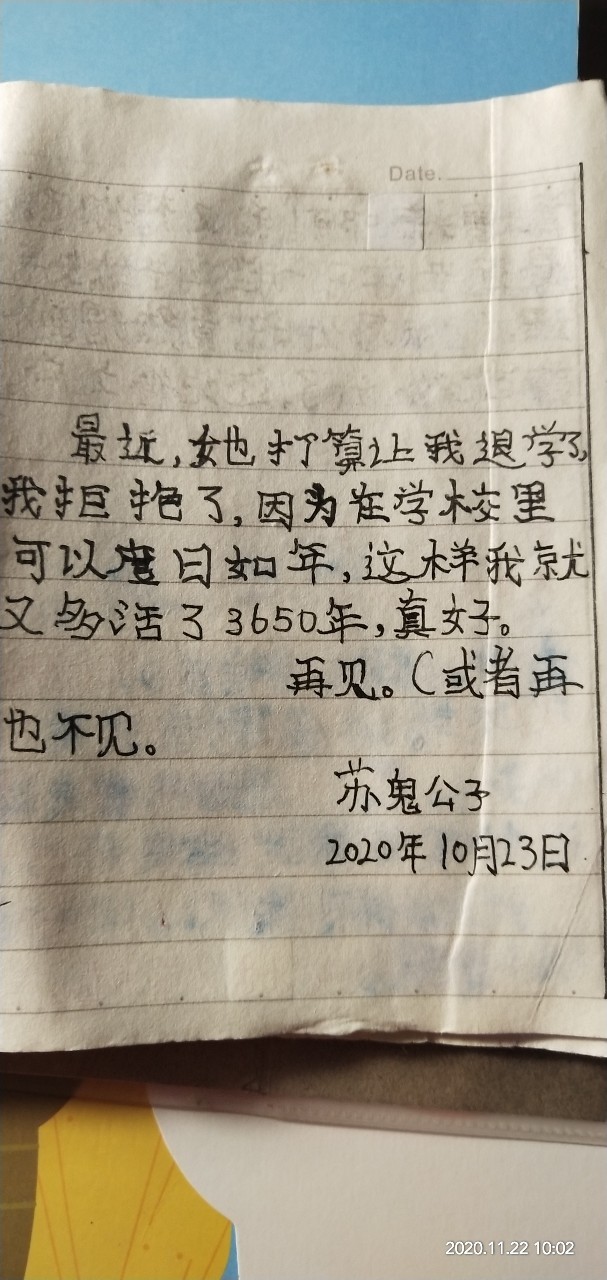 Date.
最近,她打算让我退学了,
我拒绝了,因为在学校里
可以度日如年,这样我就
又多活了3650年,真好。
再见。(或者再
也不见。
苏鬼公子
2020年10月23日
2020.11.22 10:02